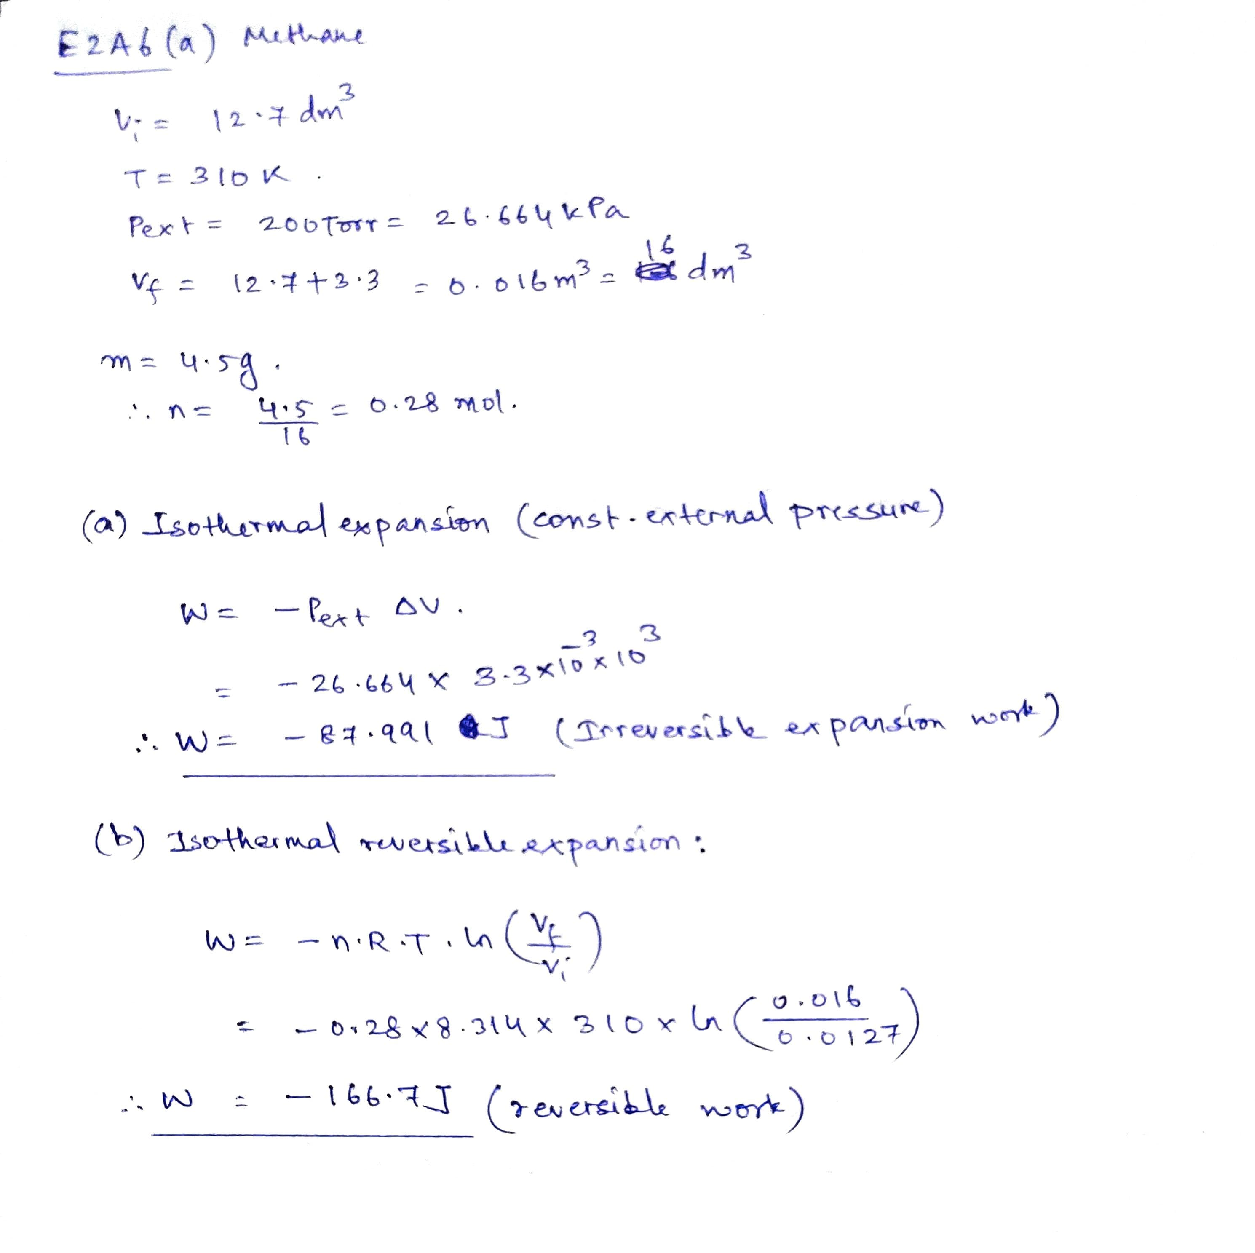 E2A6(a) Methane
Vi = 12.7 dm³
T = 310 K.
Pext = 200Torr = 26.664 kPa
Vf = 12.7+3.3 = 0.016 m³ = 16 dm³
m = 4.5g.
∴ n = 4.5/16 = 0.28 mol.
(a) Isothermal expansion (const. external pressure)
W = - Pext ΔV.
= - 26.664 × 3.3×10⁻³×10³
∴ W = - 87.991 J (Irreversible expansion work)
(b) Isothermal reversible expansion:
W = - n.R.T. ln (Vf/Vi)
= - 0.28×8.314× 310× ln (0.016/0.0127)
∴ W = - 166.7 J (reversible work)